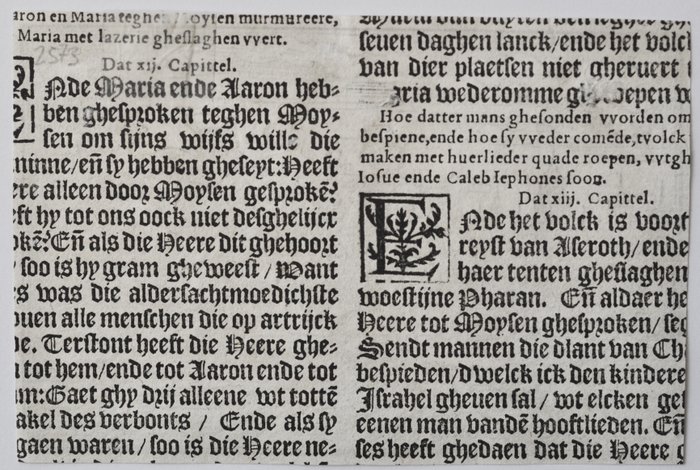 aron en Maria teghen Moysen murmureere,
Maria met lazerie gheslaghen vvert.
2573
Dat xij. Capittel.
Ende Maria ende Aaron heb-
ben ghesproken teghen Moy-
sen om sijns wijfs wille die
minne/en̄ sy hebben gheseyt: Heeft
ere alleen door Moysen gesprokē?
eft hy tot ons oock niet desghelijcx
okē? En̄ als die Heere dit ghehoort
/ soo is hy gram gheweest / Want
s was die aldersachtmoedichste
ouen alle menschen die op artrijck
ne. Terstont heeft die Heere ghe-
tot hem/ende tot Aaron ende tot
m: Gaet ghy drij alleene wt tottē
akel des verbonts / Ende als sy
gaen waren/soo is die Heere ne-
seuen daghen lanck/ende het volck
van dier plaetsen niet gheruert
aria wederomme
Hoe datter mans ghesonden vvorden om
bespiene, ende hoe sy vveder comēde, tvolck
maken met huerlieder quade roepen, vvtgh
Iosue ende Caleb Iephones soon.
Dat xiij. Capittel.
Ende het volck is voort
reyst van Aseroth/ende
haer tenten gheslaghen
woestijne Pharan. En̄ aldaer he
Heere tot Moysen ghesproken/seg
Sendt mannen die dlant van Ch
bespieden/dwelck ick den kindere
Israhel gheuen sal/ wt elcken gel
eenen man vandē hooftlieden. En̄
ses heeft ghedaen dat die Heere